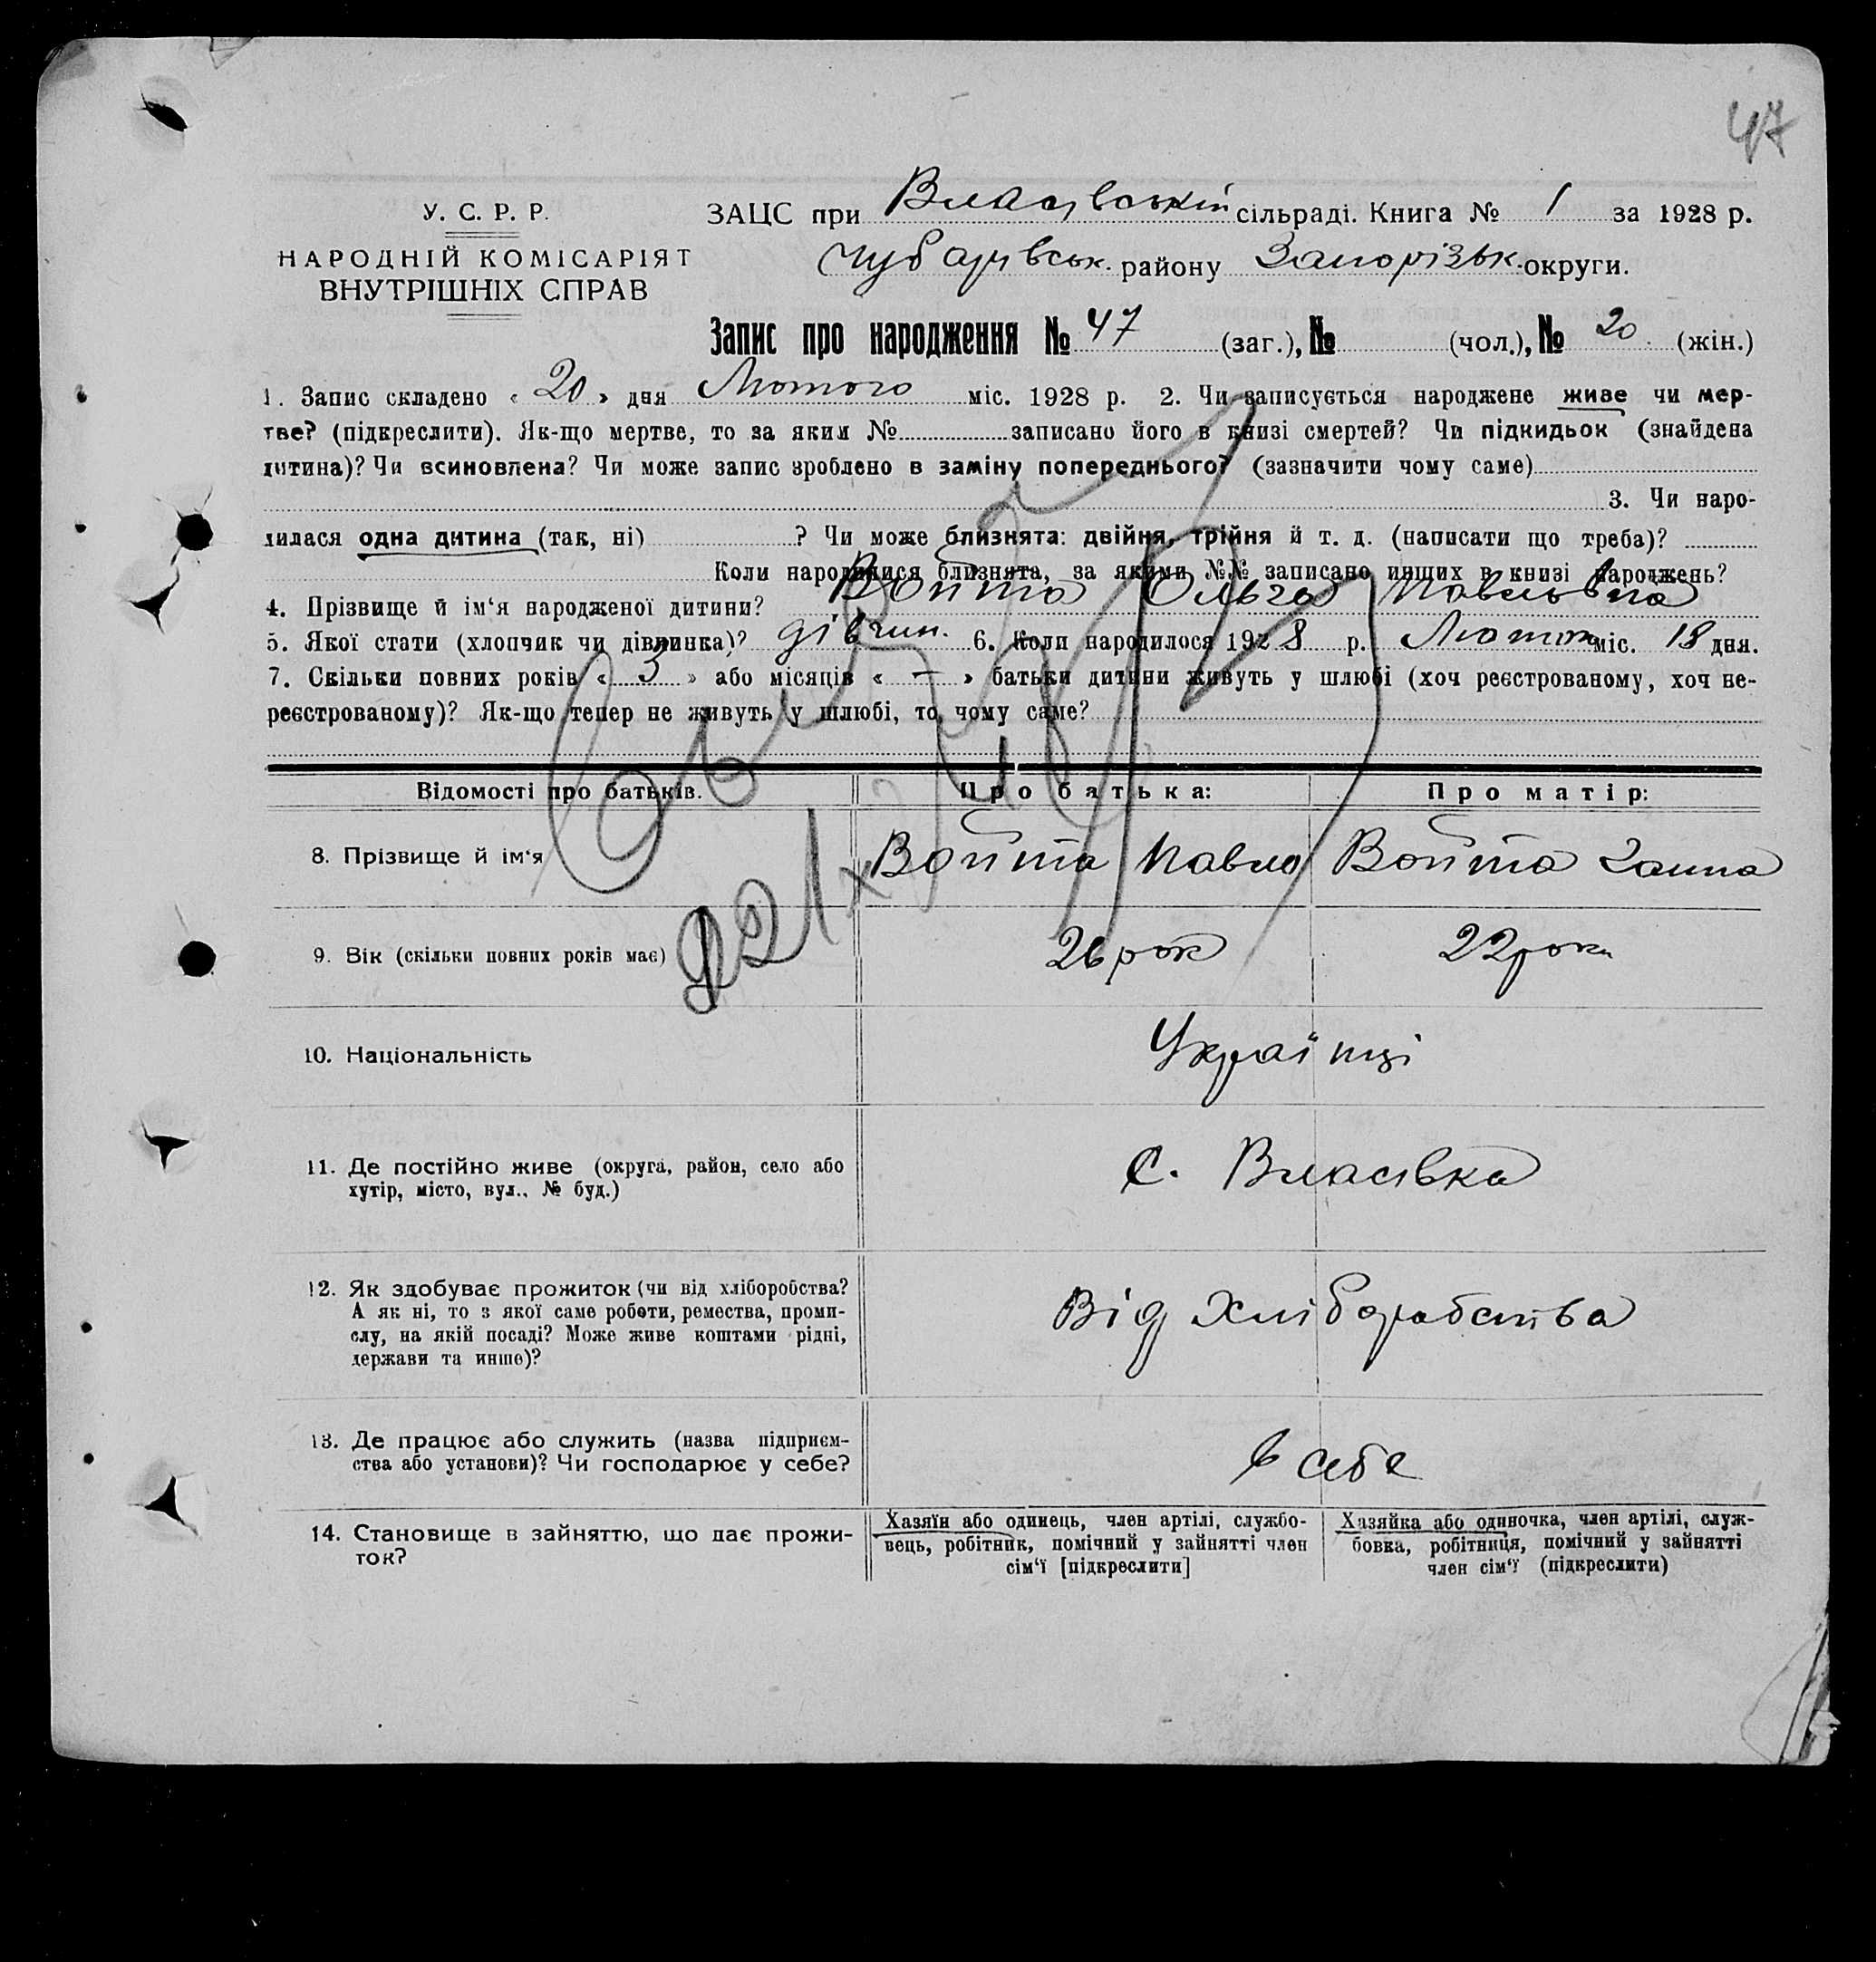 47
У. С. Р. Р.
НАРОДНІЙ КОМІСАРІЯТ
ВНУТРІШНІХ СПРАВ
ЗАЦС при Власівській сільраді. Книга № 1 за 1928 р.
Чубарівськ. району Запорізьк. округи.
Запис про народження № 47 (заг.), № (чол.), № 20 (жін.)
1. Запис складено « 20 » дня Лютого міс. 1928 р. 2. Чи записується народжене живе чи мер-
тве? (підкреслити). Як-що мертве, то за яким № записано його в книзі смертей? Чи підкидьок (знайдена
дитина)? Чи всиновлена? Чи може запис зроблено в заміну попереднього? (зазначити чому саме)
3. Чи наро-
дилася одна дитина (так, ні) ? Чи може близнята: двійня, трійня й т. д. (написати що треба)?
Коли народилися близнята, за якими №№ записано инших в книзі народжень?
4. Прізвище й ім‘я народженої дитини? Война Ольга Павлівна
5. Якої статі (хлопчик чи дівчинка)? дівчин. 6. Коли народилося 1928 р. Лютого міс. 18 дня.
7. Скільки повних років « 3 » або місяців « — » батьки дитини живуть у шлюбі (хоч реєстрованому, хоч не-
реєстрованому)? Як-що тепер не живуть у шлюбі, то чому саме?
Відомості про батьків. Про батька: Про матір:
8. Прізвище й ім‘я Война Павло Война Ганна
9. Вік (скільки повних років має) 26 рок 22 роки
10. Національність Українці
11. Де постійно живе (округа, район, село або
хутір, місто, вул., № буд.) с. Власівка
12. Як здобуває прожиток (чи від хліборобства?
А як ні, то з якої саме роботи, ремества, проми-
слу, на якій посаді? Може живе коштами рідні,
держави та инше)? Від Хліборобства
13. Де працює або служить (назва підприєм-
ства або установи)? Чи господарює у себе? в себе
14. Становище в зайняттю, що дає прожи-
ток?
Хазяїн або одинець, член артілі, службо-
вець, робітник, помічний у зайнятті член
сім‘ї [підкреслити]
Хазяйка або одиночка, член артілі, служ-
бовка, робітниця, помічний у зайнятті
член сім‘ї (підкреслити)